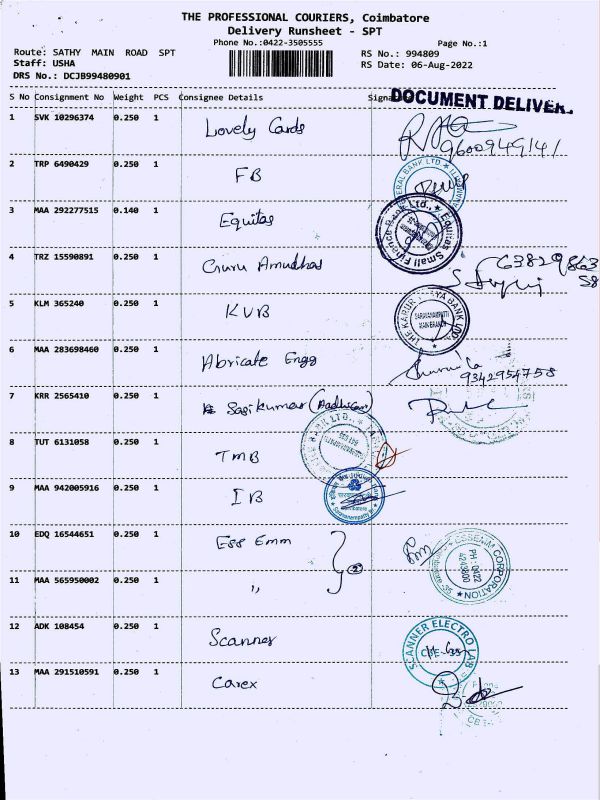 THE PROFESSIONAL COURIERS, Coimbatore
Delivery Runsheet - SPT
Phone No.:0422-3505555
Page No.:1
Route: SATHY MAIN ROAD SPT
RS No.: 994809
Staff: USHA
RS Date: 06-Aug-2022
DRS No.: DCJB99480901
S No Consignment No Weight PCS Consignee Details Signa
DOCUMENT DELIVER
1 SVK 10296374 0.250 1 Lovely Cards
9600949141
2 TRP 6490429 0.250 1 FB
ERAL BANK LTD
3 MAA 292277515 0.140 1 Equitas
Equitas Small Finance Bank Ltd.,
4 TRZ 15590891 0.250 1 Guru Amudhas
5 KLM 365240 0.250 1 KVB
THE KARUR VYSYA BANK LTD
SARAVANAMPATTI
MAIN BRANCH
6 MAA 283698460 0.250 1 Abricate Engg
9342954758
7 KRR 2565410 0.250 1 Sasikumar
8 TUT 6131058 0.250 1 TMB
BANK LTD.,
9 MAA 942005916 0.250 1 IB
10 EDQ 16544651 0.250 1 Ess Emm
ESSEMM CORPORATION
PH: 0422
4243800
11 MAA 565950002 0.250 1 "
12 ADK 108454 0.250 1 Scanner
SCANNER ELECTRO LAB
CBE-35
13 MAA 291510591 0.250 1 Carex